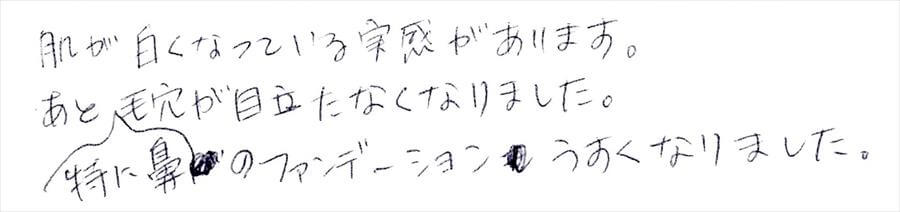 肌が白くなっている実感があります。
あと毛穴が目立たなくなりました。
特に鼻のファンデーションうすくなりました。